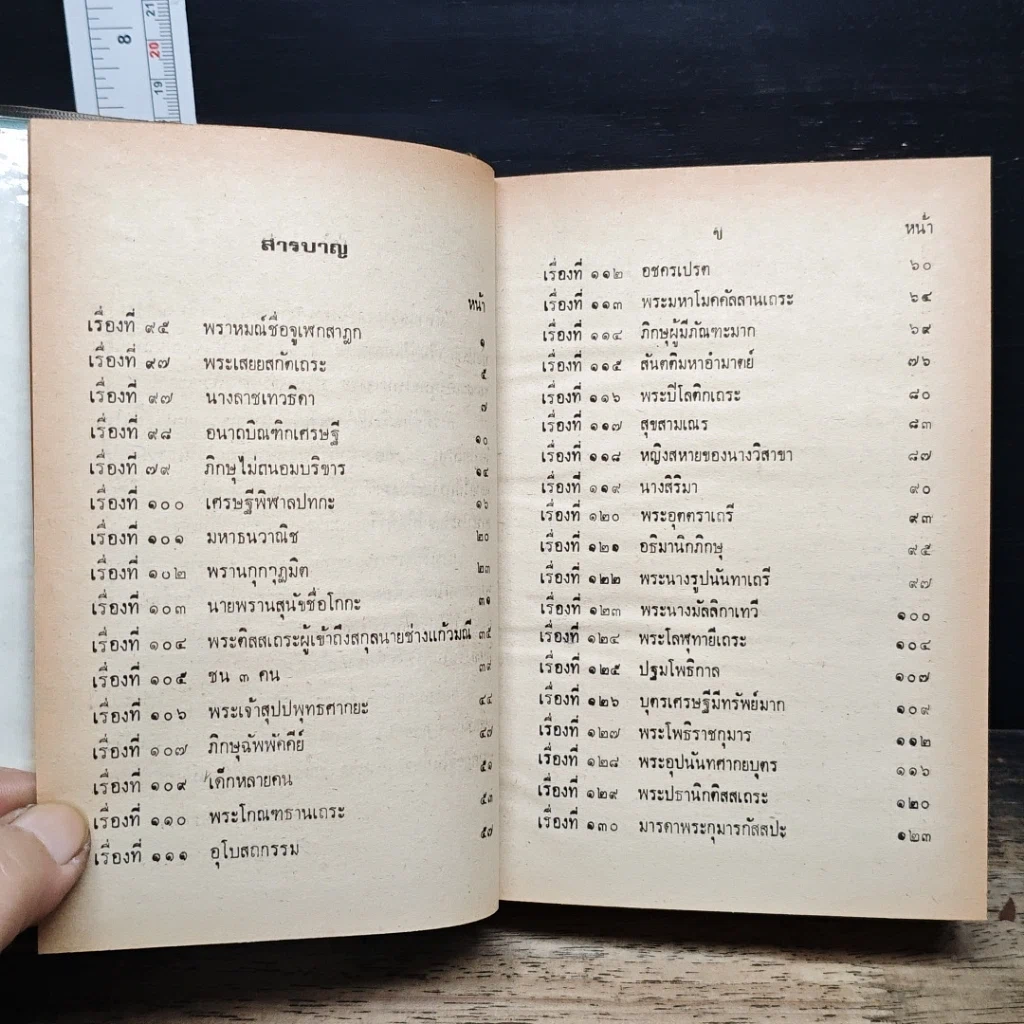 8
21
20
19
สารบาญ
หน้า
เรื่องที่ ๙๕ พราหมณ์ชื่อจูเฬกสาฎก ๑
เรื่องที่ ๙๗ พระเสยยสกัตเถระ ๕
เรื่องที่ ๙๗ นางลาชเทวธิดา ๗
เรื่องที่ ๙๘ อนาถบิณฑิกเศรษฐี ๑๐
เรื่องที่ ๗๙ ภิกษุไม่ถนอมบริขาร ๑๔
เรื่องที่ ๑๐๐ เศรษฐีพิฬาลปทกะ ๑๖
เรื่องที่ ๑๐๑ มหาธนวาณิช ๒๐
เรื่องที่ ๑๐๒ พรานกุกกุฏมิต ๒๓
เรื่องที่ ๑๐๓ นายพรานสุนัขชื่อโกกะ ๓๑
เรื่องที่ ๑๐๔ พระติสสเถระผู้เข้าถึงสกุลนายช่างแก้วมณี ๓๕
เรื่องที่ ๑๐๕ ชน ๓ คน ๓๙
เรื่องที่ ๑๐๖ พระเจ้าสุปปพุทธศากยะ ๔๔
เรื่องที่ ๑๐๗ ภิกษุฉัพพัคคีย์ ๔๗
เรื่องที่ ๑๐๙ เด็กหลายคน ๕๑
เรื่องที่ ๑๑๐ พระโกณฑธานเถระ ๕๓
เรื่องที่ ๑๑๑ อุโบสถกรรม ๕๗
ข
หน้า
เรื่องที่ ๑๑๒ อชครเปรต ๖๐
เรื่องที่ ๑๑๓ พระมหาโมคคัลลานเถระ ๖๔
เรื่องที่ ๑๑๔ ภิกษุผู้มีภัณฑะมาก ๖๙
เรื่องที่ ๑๑๕ สันตติมหาอำมาตย์ ๗๖
เรื่องที่ ๑๑๖ พระปิโลติกเถระ ๘๐
เรื่องที่ ๑๑๗ สุขสามเณร ๘๓
เรื่องที่ ๑๑๘ หญิงสหายของนางวิสาขา ๘๗
เรื่องที่ ๑๑๙ นางสิริมา ๙๐
เรื่องที่ ๑๒๐ พระอุตตราเถรี ๙๓
เรื่องที่ ๑๒๑ อธิมานิกภิกษุ ๙๕
เรื่องที่ ๑๒๒ พระนางรูปนันทาเถรี ๙๗
เรื่องที่ ๑๒๓ พระนางมัลลิกาเทวี ๑๐๐
เรื่องที่ ๑๒๔ พระโลฬุทายีเถระ ๑๐๔
เรื่องที่ ๑๒๕ ปฐมโพธิกาล ๑๐๗
เรื่องที่ ๑๒๖ บุตรเศรษฐีมีทรัพย์มาก ๑๐๙
เรื่องที่ ๑๒๗ พระโพธิราชกุมาร ๑๑๒
เรื่องที่ ๑๒๘ พระอุปนันทศากยบุตร ๑๑๖
เรื่องที่ ๑๒๙ พระปธานิกติสสเถระ ๑๒๐
เรื่องที่ ๑๓๐ มารดาพระกุมารกัสสปะ ๑๒๓